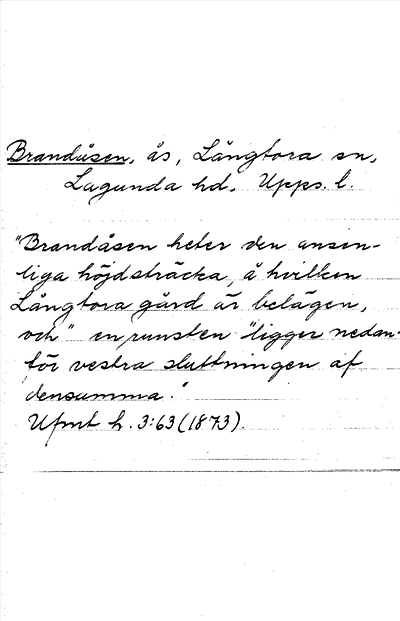 Brandåsen, ås, Långtora sn,
Lagunda hd, Upps. l.
"Brandåsen heter den ansen-
liga höjdsträcka, å hvilken
Långtora gård är belägen,
och" en runsten "ligger nedan-
för vestra sluttningen af
densamma."
Ufmt h. 3:63 (1873).